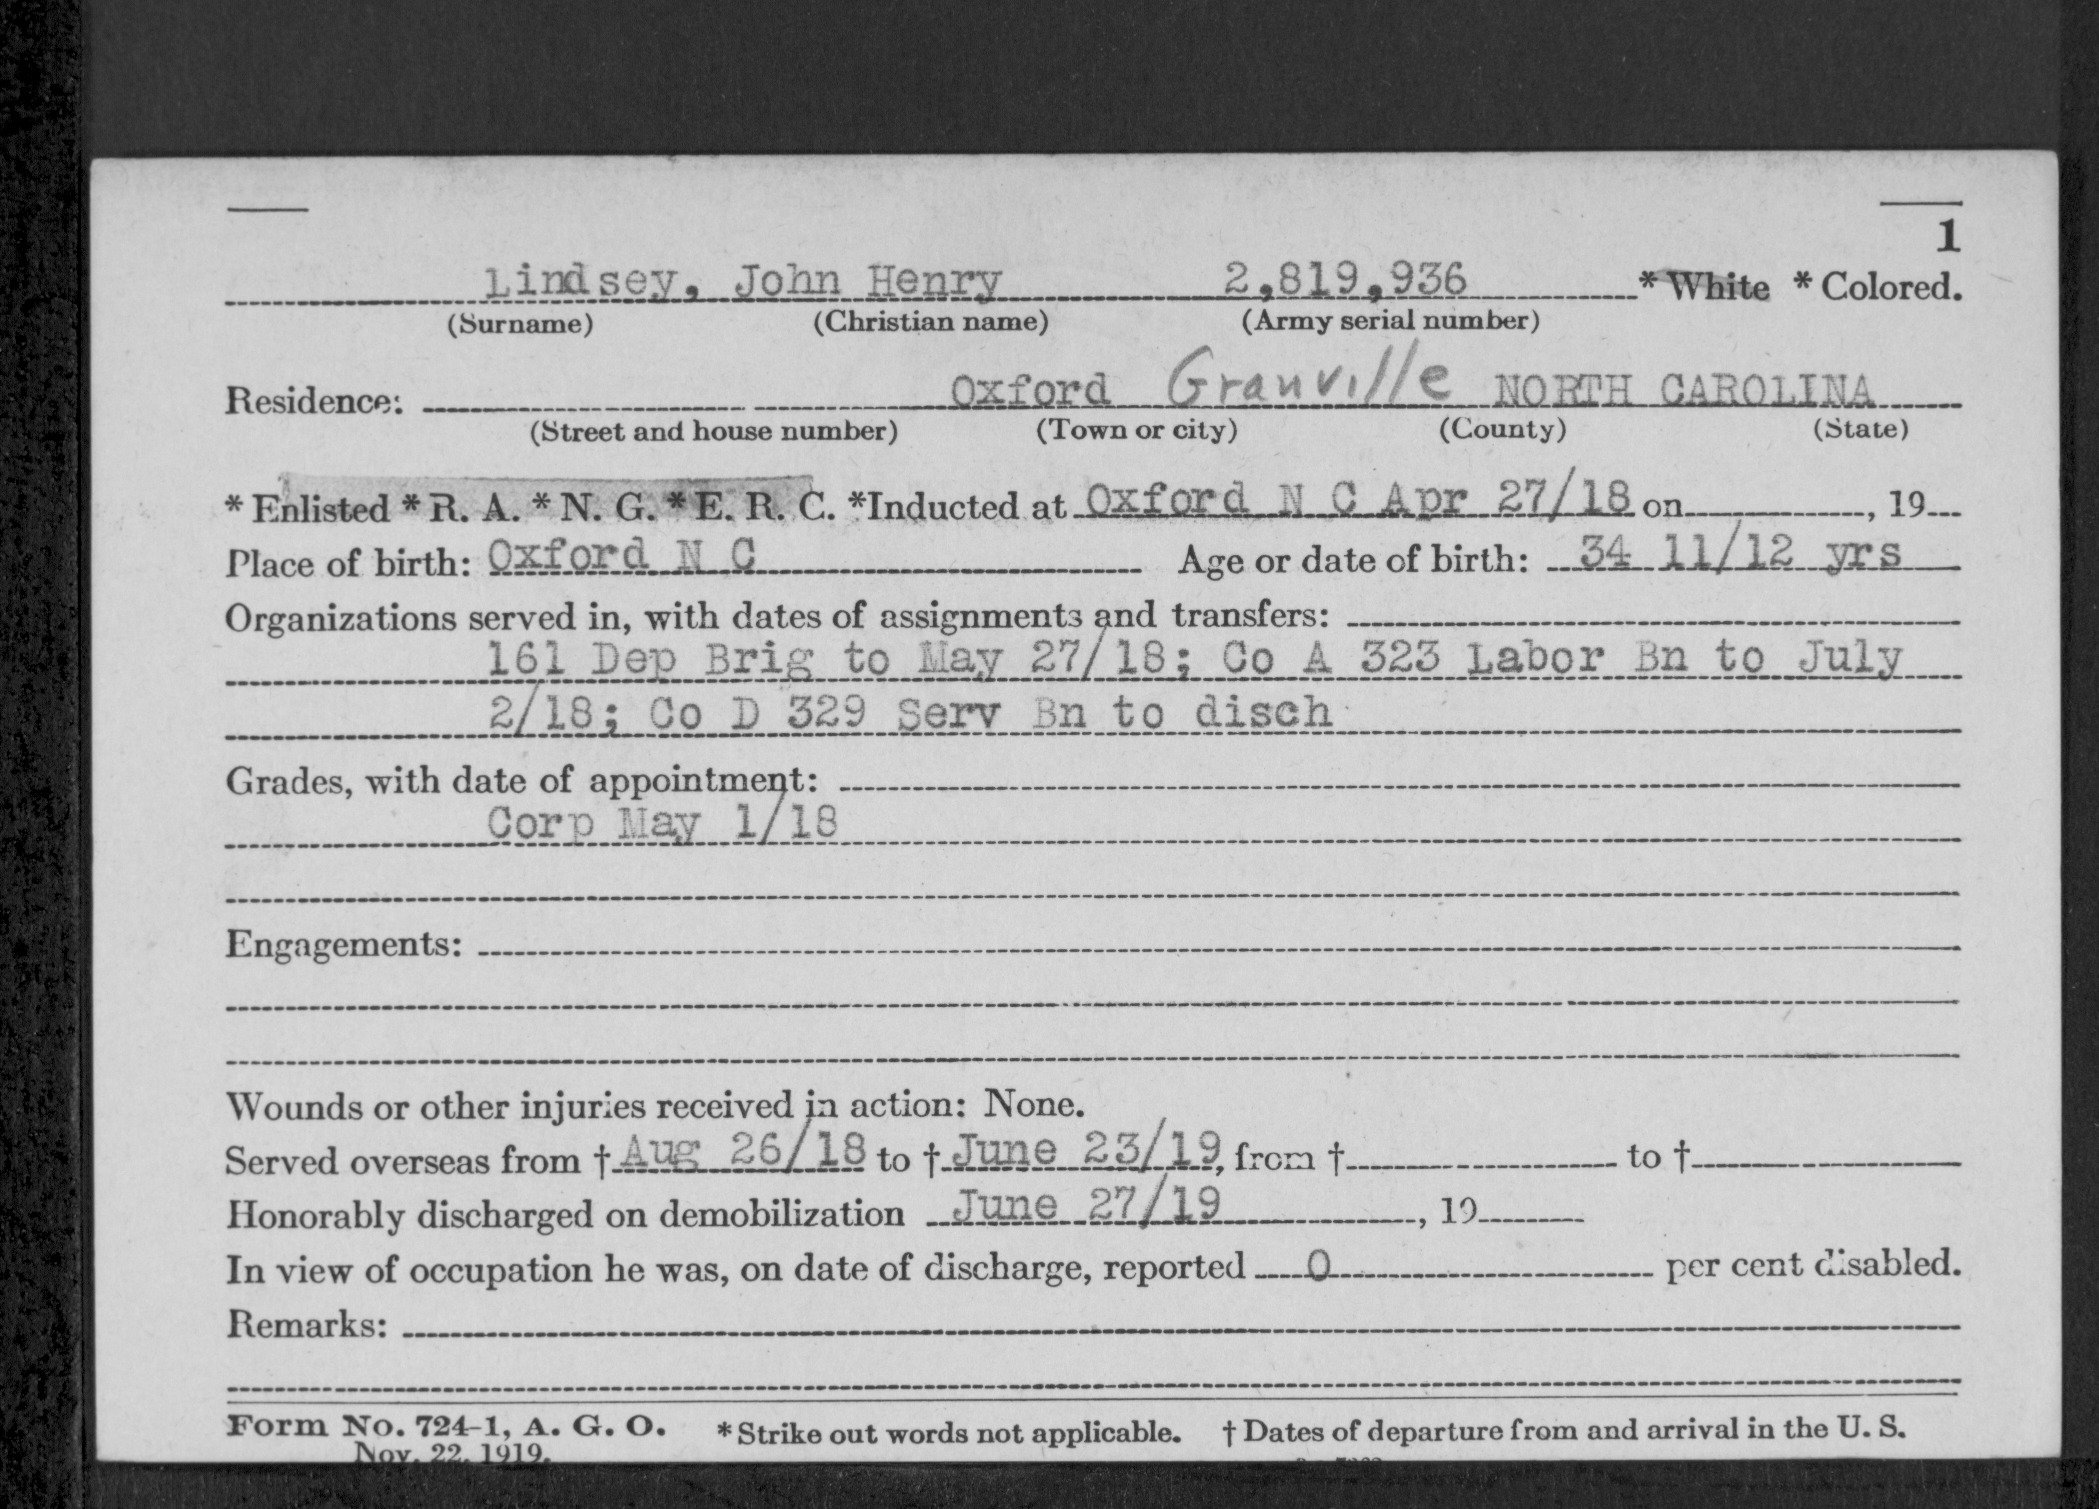 1
Lindsey, John Henry 2,819,936 * White * Colored.
(Surname) (Christian name) (Army serial number)
Residence: Oxford Granville NORTH CAROLINA
(Street and house number) (Town or city) (County) (State)
* Enlisted * R. A. * N. G. * E. R. C. *Inducted at Oxford N C Apr 27/18 on , 19
Place of birth: Oxford N C Age or date of birth: 34 11/12 yrs
Organizations served in, with dates of assignments and transfers:
161 Dep Brig to May 27/18; Co A 323 Labor Bn to July
2/18; Co D 329 Serv Bn to disch
Grades, with date of appointment:
Corp May 1/18
Engagements:
Wounds or other injuries received in action: None.
Served overseas from † Aug 26/18 to † June 23/19, from † to †
Honorably discharged on demobilization June 27/19 , 19
In view of occupation he was, on date of discharge, reported 0 per cent disabled.
Remarks:
Form No. 724-1, A. G. O. * Strike out words not applicable. † Dates of departure from and arrival in the U. S.
Nov. 22, 1919.